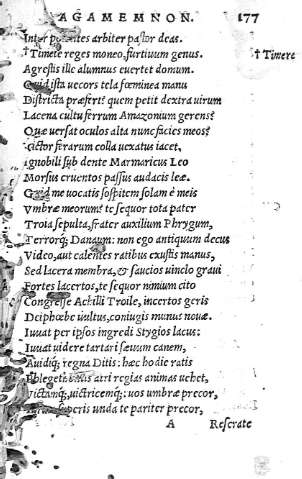 AGAMEMNON. 177
Inter potentes arbiter pastor deas.
†Timete reges moneo, furtiuum genus. †Timere
Agrestis ille alumnus euertet domum.
Quid ista uecors tela fœminea manu
Districta præfert? quem petit dextra uirum
Lacena cultu ferrum Amazonium gerens?
Quæ uersat oculos alia nunc facies meos?
Victor ferarum colla uexatus iacet,
Ignobili sub dente Marmaricus Leo
Morsus cruentos passus audacis leæ.
Quid me uocatis sospitem solam è meis
Vmbræ meorum? te sequor tota pater
Troia sepulta, frater auxilium Phrygum,
Terrorq; Danaum: non ego antiquum decus
Video, aut calentes ratibus exustis manus,
Sed lacera membra, & saucios uinclo graui
Fortes lacertos, te sequor nimium cito
Congresse Achilli Troile, incertos geris
Deiphœbe uultus, coniugis munus nouæ.
Iuuat per ipsos ingredi Stygios lacus:
Iuuat uidere tartari sæuum canem,
Auidiq; regna Ditis: hæc hodie ratis
Phlegethontis atri regias animas uehet,
Victamq; uictricemq;: uos umbræ precor,
unda te pariter precor,
A Reserate